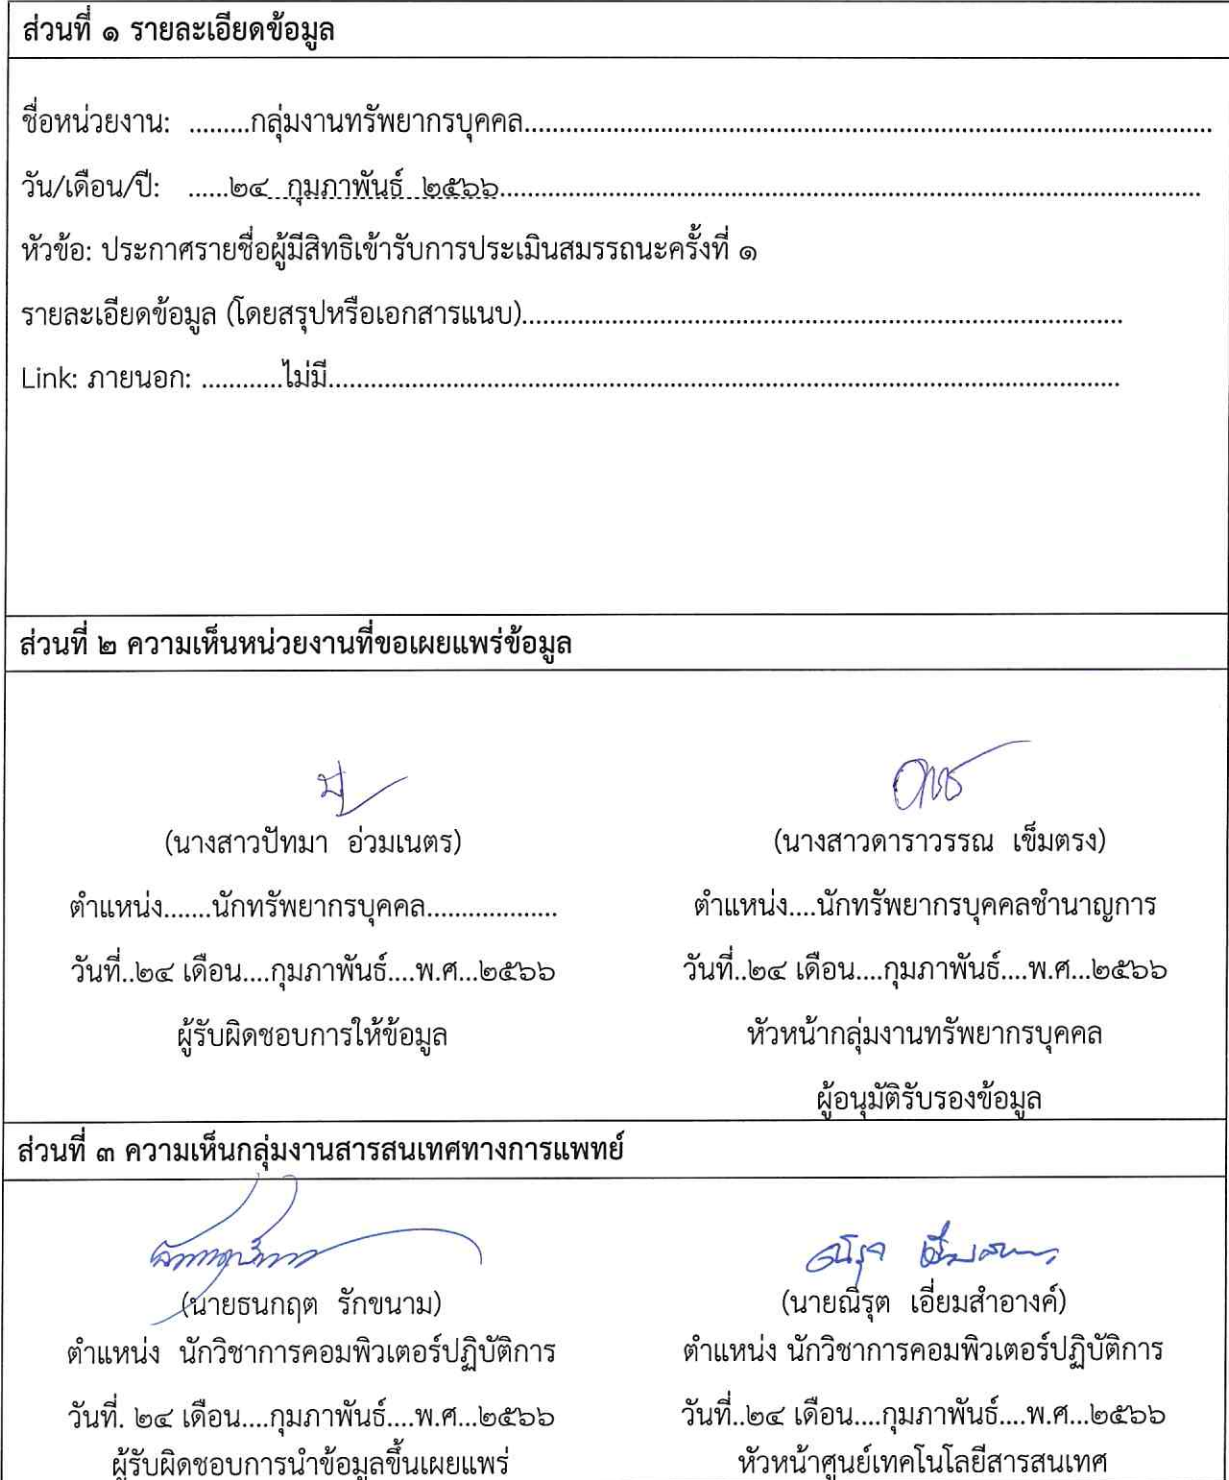 ส่วนที่ ๑ รายละเอียดข้อมูล
ชื่อหน่วยงาน: .........กลุ่มงานทรัพยากรบุคคล.........
วัน/เดือน/ปี: ......๒๔ กุมภาพันธ์ ๒๕๖๖.........
หัวข้อ: ประกาศรายชื่อผู้มีสิทธิเข้ารับการประเมินสมรรถนะครั้งที่ ๑
รายละเอียดข้อมูล (โดยสรุปหรือเอกสารแนบ).........
Link: ภายนอก: ...........ไม่มี.........
ส่วนที่ ๒ ความเห็นหน่วยงานที่ขอเผยแพร่ข้อมูล
(นางสาวปัทมา อ่วมเนตร)
ตำแหน่ง.......นักทรัพยากรบุคคล...................
วันที่..๒๔ เดือน....กุมภาพันธ์....พ.ศ...๒๕๖๖
ผู้รับผิดชอบการให้ข้อมูล
(นางสาวดาราวรรณ เข็มตรง)
ตำแหน่ง....นักทรัพยากรบุคคลชำนาญการ
วันที่..๒๔ เดือน....กุมภาพันธ์....พ.ศ...๒๕๖๖
หัวหน้ากลุ่มงานทรัพยากรบุคคล
ผู้อนุมัติรับรองข้อมูล
ส่วนที่ ๓ ความเห็นกลุ่มงานสารสนเทศทางการแพทย์
(นายธนกฤต รักขนาม)
ตำแหน่ง นักวิชาการคอมพิวเตอร์ปฏิบัติการ
วันที่. ๒๔ เดือน....กุมภาพันธ์....พ.ศ...๒๕๖๖
ผู้รับผิดชอบการนำข้อมูลขึ้นเผยแพร่
(นายณิรุต เอี่ยมสำอางค์)
ตำแหน่ง นักวิชาการคอมพิวเตอร์ปฏิบัติการ
วันที่..๒๔ เดือน....กุมภาพันธ์....พ.ศ...๒๕๖๖
หัวหน้าศูนย์เทคโนโลยีสารสนเทศ